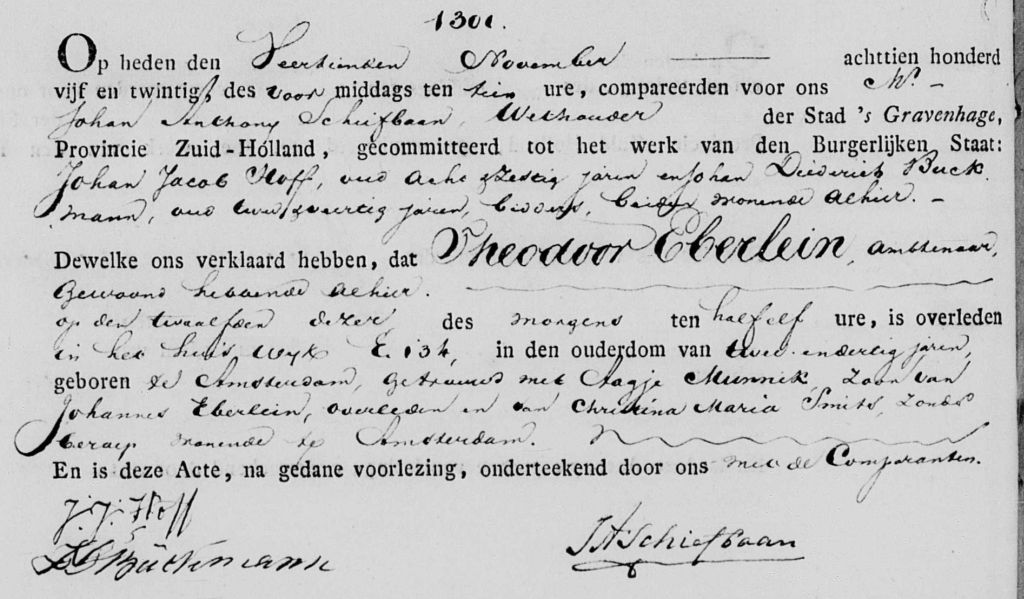 1301.
Op heden den Veertienden November achttien honderd
vijf en twintig, des voor middags ten tien ure, compareerden voor ons Mr.
Johan Anthony Schiefbaan, Wethouder der Stad 's Gravenhage,
Provincie Zuid-Holland, gecommitteerd tot het werk van den Burgerlijken Staat:
Johan Jacob Hoff, oud acht zestig jaren en Johan Diederich Buck
mann, oud twee veertig jaren, bidders, beiden wonende alhier. -
Dewelke ons verklaard hebben, dat Theodoor Eberlein, ambtenaar,
gewoond hebbende alhier.
op den twaalfden dezer, des morgens ten half elf ure, is overleden
in het huis Wyk E. 134, in den ouderdom van twee en dertig jaren,
geboren te Amsterdam, getrouwd met Aagje Munnik, Zoon van
Johannes Eberlein, overleden en van Christina Maria Smits, zonder
beroep wonende te Amsterdam.
En is deze Acte, na gedane voorlezing, onderteekend door ons met de Comparanten.
J. J. Hoff
Bückmann
JASchiefbaan